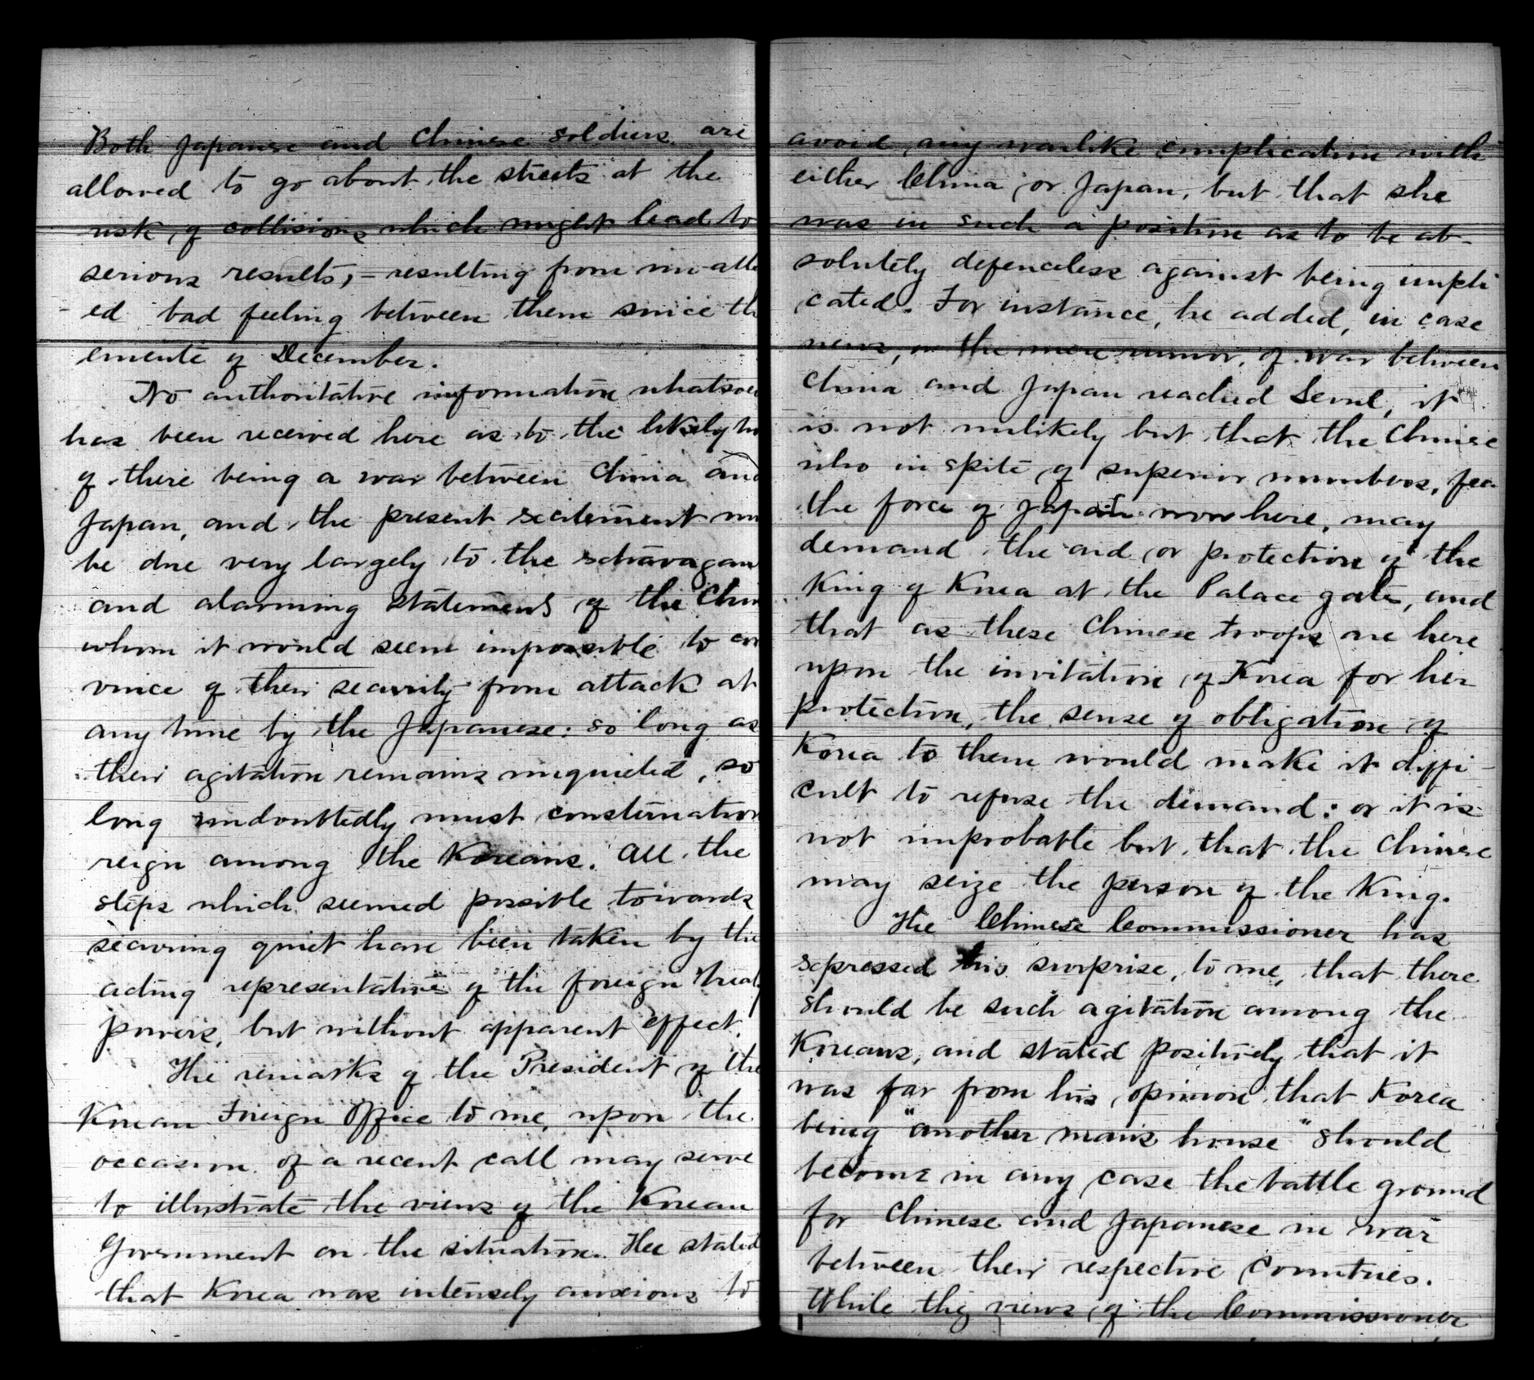 Both Japanese and Chinese soldiers are
allowed to go about the streets at the
risk of collisions which might lead to
serious results, – resulting from un-alla
ed bad feeling between them since th
emente of December.
No authoritative information whatsoe
has been received here as to the likely ho
of there being a war between China and
Japan, and the present excitement m
be due very largely to the extravagan
and alarming statements of the Chin
whom it would seem impossible to con
vince of their security from attack at
any time by the Japanese: so long as
their agitation remains unquieted, so
long undoubtedly must consternation
reign among the Koreans. All the
steps which seemed possible towards
securing quiet have been taken by the
acting representative of the foreign Treaty
powers, but without apparent effect.
The remarks of the President of the
Korean Foreign Office to me, upon the
occasion of a recent call may serve
to illustrate the views of the Korean
Government on the situation. He stated
that Korea was intensely anxious to
avoid any warlike complication with
either China or Japan, but that she
was in such a position as to be ab-
solutely defenceless against being impli
cated. For instance, he added, in case
news, or the mere rumor, of war between
China and Japan reached Seoul, it
is not unlikely but that the Chinese
who in spite of superior numbers, fea
the force of Japan now here, may
demand the aid or protection of the
King of Korea at the Palace gate, and
that as these Chinese troops are here
upon the invitation of Korea for her
protection, the sense of obligation of
Korea to them would make it diffi-
cult to refuse the demand: or it is
not improbable but that the Chinese
may seize the person of the King.
The Chinese Commissioner has
expressed his surprise, to me, that there
should be such agitation among the
Koreans, and stated positively that it
was far from his opinion that Korea
being "another man's house" should
become in any case the battle ground
for Chinese and Japanese in war
between their respective Countries.
While the views of the Commissioner